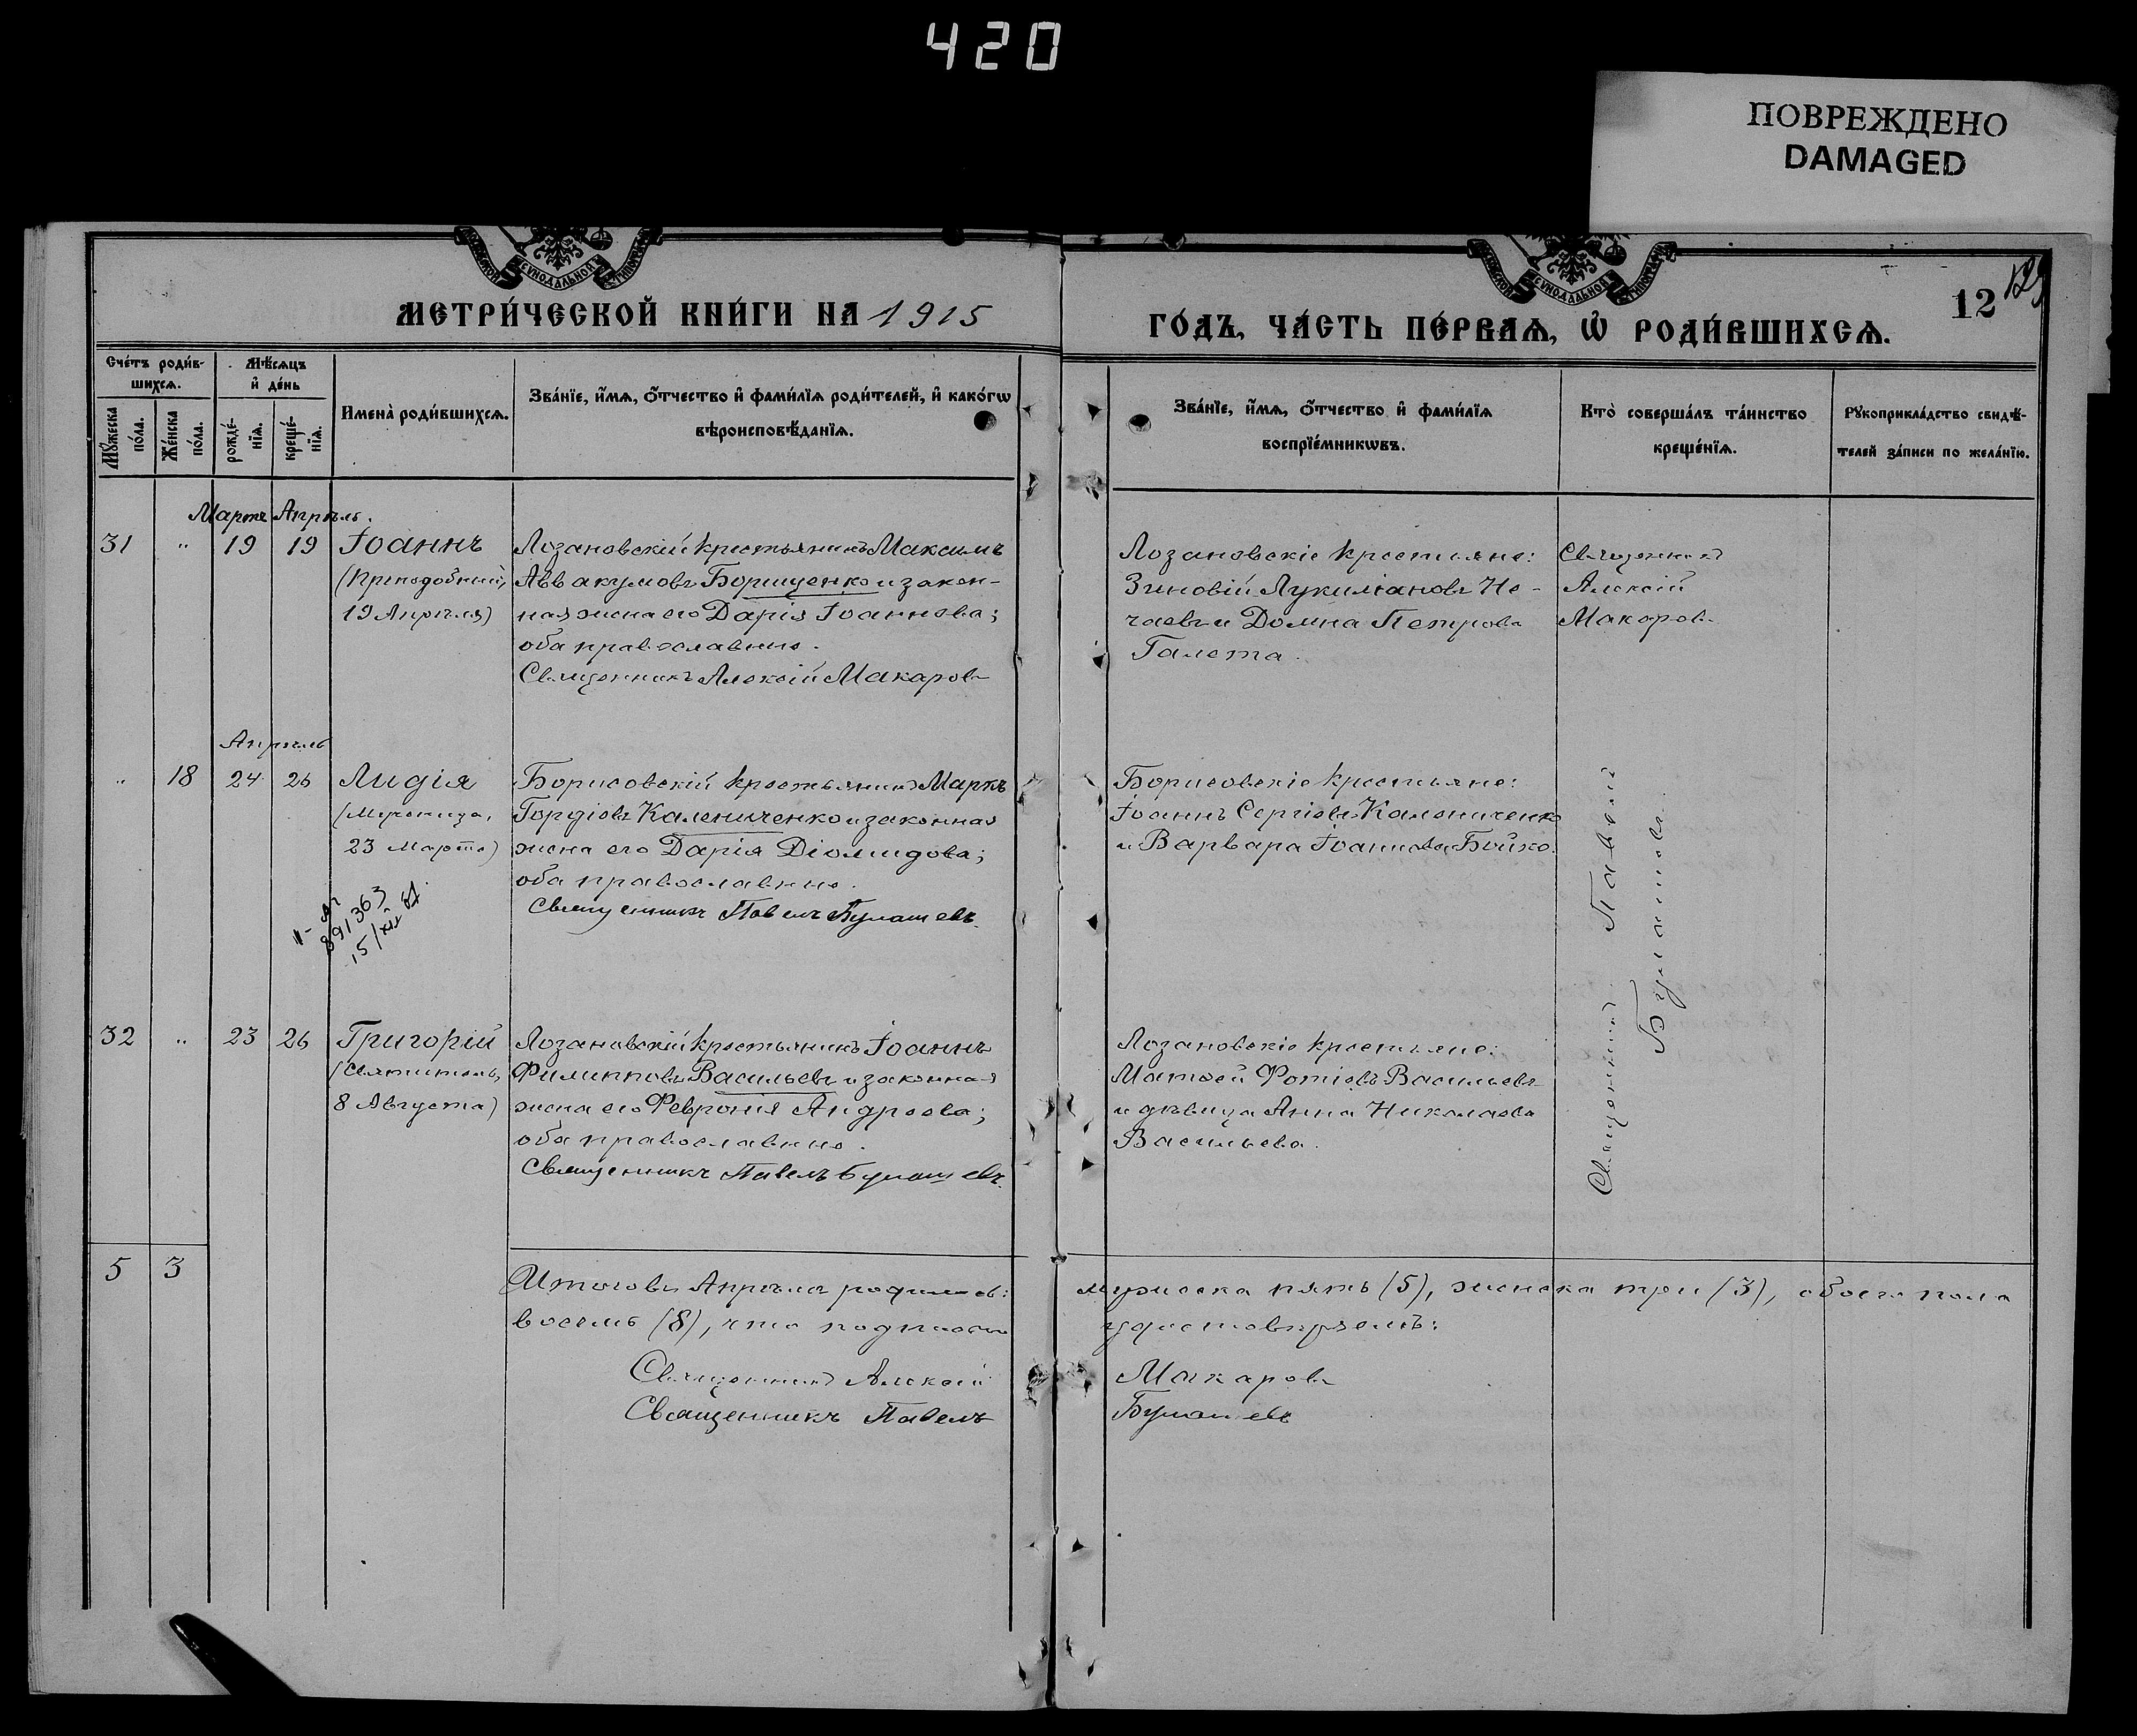 420
ПОВРЕЖДЕНО
DAMAGED
МЕТРИ́ЧЕСКОЙ КНИ́ГИ НА 1915
ГО́ДЪ, ЧА́СТЬ ПЕ́РВАѦ, Ѽ РОДИ́ВШИХСѦ.
12
Сче́тъ роди́в-
шихсѧ.
Мѣ́сѧцъ
и҆ де́нь
Мꙋ́жеска
по́ла.
Же́нска
по́ла.
рожде́-
нїѧ.
креще́-
нїѧ.
Имена̀ роди́вшихсѧ.
Зва́нїе, и҆́мѧ, ѻ҆́тчество и҆ фами́лїѧ роди́телей, и҆ како́гѡ
вѣроисповѣ́данїѧ.
Зва́нїе, и҆́мѧ, ѻ҆́тчество и҆ фами́лїѧ
воспрїе́мникѡвъ.
Кто̀ соверша́лъ та́инство
креще́нїѧ.
Рꙋкоприкла́дство свидѣ́-
телей за́писи по жела́нїю.
Мартъ Апрѣль.
31 " 19 19 Іоаннъ
(Преподобный,
19 Апрѣля)
Лозановскій крестьянинъ Максимъ
Аввакумовъ Борищенко и закон-
ная жена его Дарія Іоаннова;
оба православные.
Священникъ Алексій Макаровъ
Лозановскіе крестьяне:
Зиновій Лукиліановъ Не-
чаевъ и Домна Петрова
Галета.
Священникъ
Алексій
Макаровъ
Апрѣль
" 18 24 26 Лидія
(Мученица,
23 Марта)
891363
Борисовскій крестьянинъ Маркъ
Гордіевъ Калениченко и законная
жена его Дарія Діомидова;
оба православные.
Священникъ Павелъ Булашевъ.
Борисовскіе крестьяне:
Іоаннъ Сергіевъ Калениченко
и Варвара Іоаннова Бойко.
Священникъ Павелъ
Булашевъ.
32 " 23 26 Григорій
(Святитель,
8 Августа)
Лозановскій крестьянинъ Іоаннъ
Филипповъ Васильевъ и законная
жена его Февронія Андреева;
оба православные.
Священникъ Павелъ Булашевъ.
Лозановскіе крестьяне:
Матѳей Фотіевъ Васильевъ
и дѣвица Анна Николаева
Васильева.
5 3
Итого въ Апрѣлѣ родилось: мужеска пять (5), женска три (3), обоего пола
восемь (8), что подписью удостовѣряемъ:
Священникъ Алексій Макаровъ
Священникъ Павелъ Булашевъ